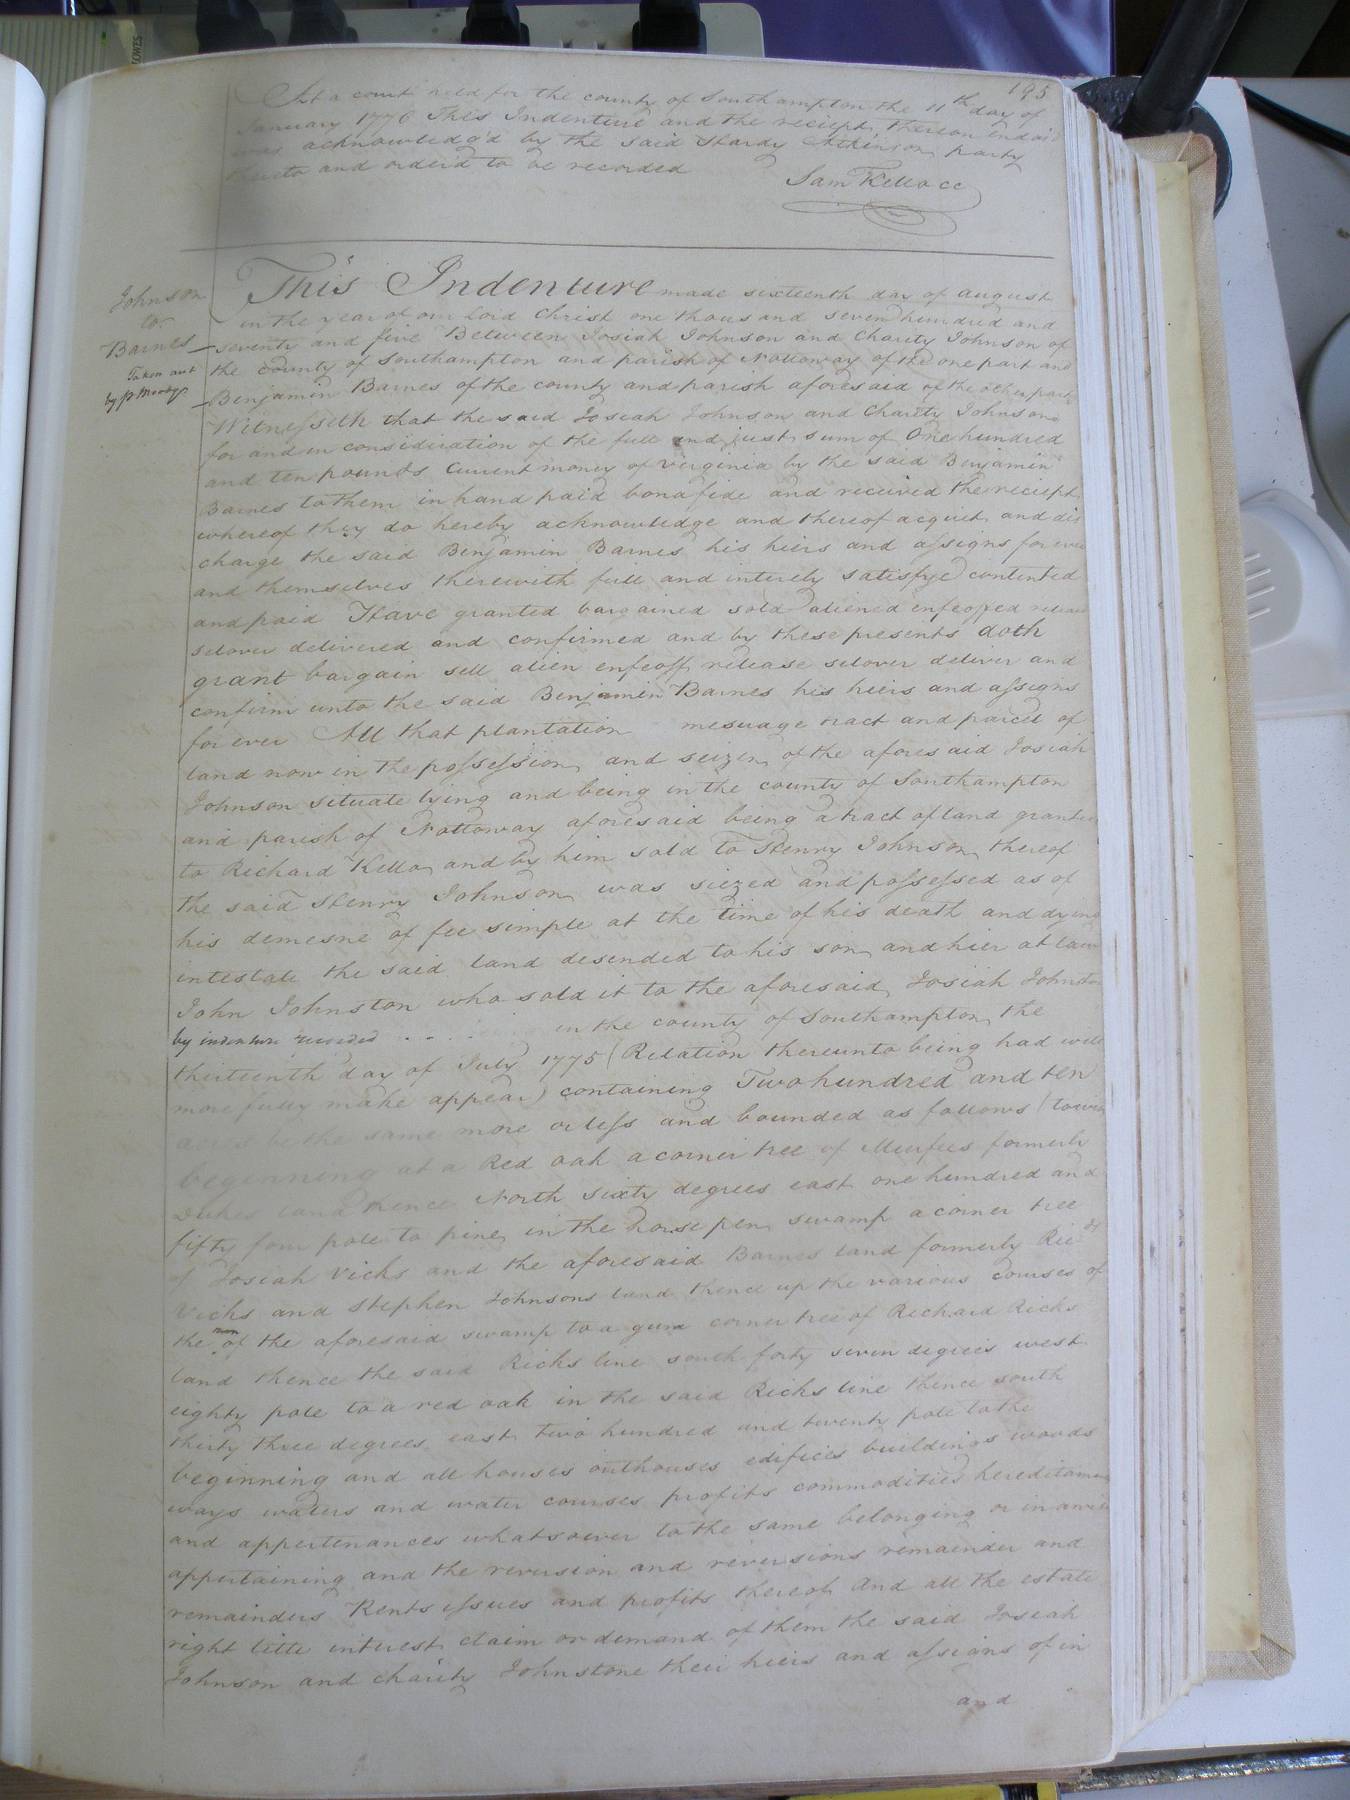 195
At a court held for the county of Southampton the 11th day of
January 1776 This Indenture and the reciept thereon endors
was acknowledg'd by the said Hardy Atkinson party
thereto and orderd to be recorded
Sam Kello cc
Johnson
to
Barnes
Taken out
by
This Indenture made sixteenth day of august
in the year of our Lord Christ one thousand seven hundred and
seventy and five Between Josiah Johnson and Charity Johnson of
the county of Southampton and parish of Nottoway of the one part and
Benjamin Barnes of the county and parish aforesaid of the other part
Witnesseth that the said Josiah Johnson and Charity Johnson
for and in consideration of the full and just sum of One hundred
and ten pounds Current money of Virginia by the said Benjamin
Barnes to them in hand paid bonafide and received the reciept
whereof they do hereby acknowledge and thereof acquit and dis
charge the said Benjamin Barnes his heirs and assigns for ever
and themselves therewith full and intirely satisfye contented
and paid Have granted bargained sold aliened enfeoffed releas
setover delivered and confirmed and by these presents doth
grant bargain sell alien enfeoff release setover deliver and
confirm unto the said Benjamin Barnes his heirs and assigns
for ever All that plantation mesuage tract and parcel of
land now in the possession and seizen of the aforesaid Josiah
Johnson situate lying and being in the county of Southampton
and parish of Nottoway aforesaid being a tract of land grante
to Richard Kello and by him sold to Henry Johnson thereof
the said Henry Johnson was siezed and possessed as of
his demesne of fee simple at the time of his death and dying
intestate the said land desended to his son and hier at law
John Johnston who sold it to the aforesaid Josiah Johnston
by indenture recorded . . . . in the county of Southampton the
thirteenth day of July 1775 (Relation thereunto being had will
more fully make appear) containing Two hundred and ten
acres be the same more or less and bounded as follows (towit
beginning at a Red oak a corner tree of Murfees formerly
Dukes land thence North sixty degrees east one hundred and
fifty four pole to pine in the horse pen swamp a corner tree
of Josiah Vicks and the aforesaid Barnes land formerly Ric
Vicks and Stephen Johnsons land thence up the various courses of
the run of the aforesaid swamp to a gum corner tree of Richard Ricks
land thence the said Ricks line south forty seven degrees west
eighty pole to a red oak in the said Ricks line thence south
thirty three degrees east two hundred and twenty pole to the
beginning and all houses outhouses edifices buildings woods
ways waters and water courses profits commodities hereditamen
and appertenances whatsoever to the same belonging or in
appertaining and the reversion and reversions remainder and
remainders Rents issues and profits thereof and all the estate
right title interest claim or demand of them the said Josiah
Johnson and charity Johnstone their hiers and assigns of in
and